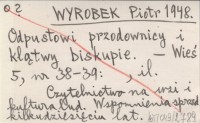 o.2
WYROBEK Piotr 1948.
Odpustowi przodownicy i
klątwy biskupie. – Wieś
5, nr 38-39: , il.
Czytelnictwo na wsi i
kultura lud. Wspomnienia sprzed
kilkudziesięciu lat.